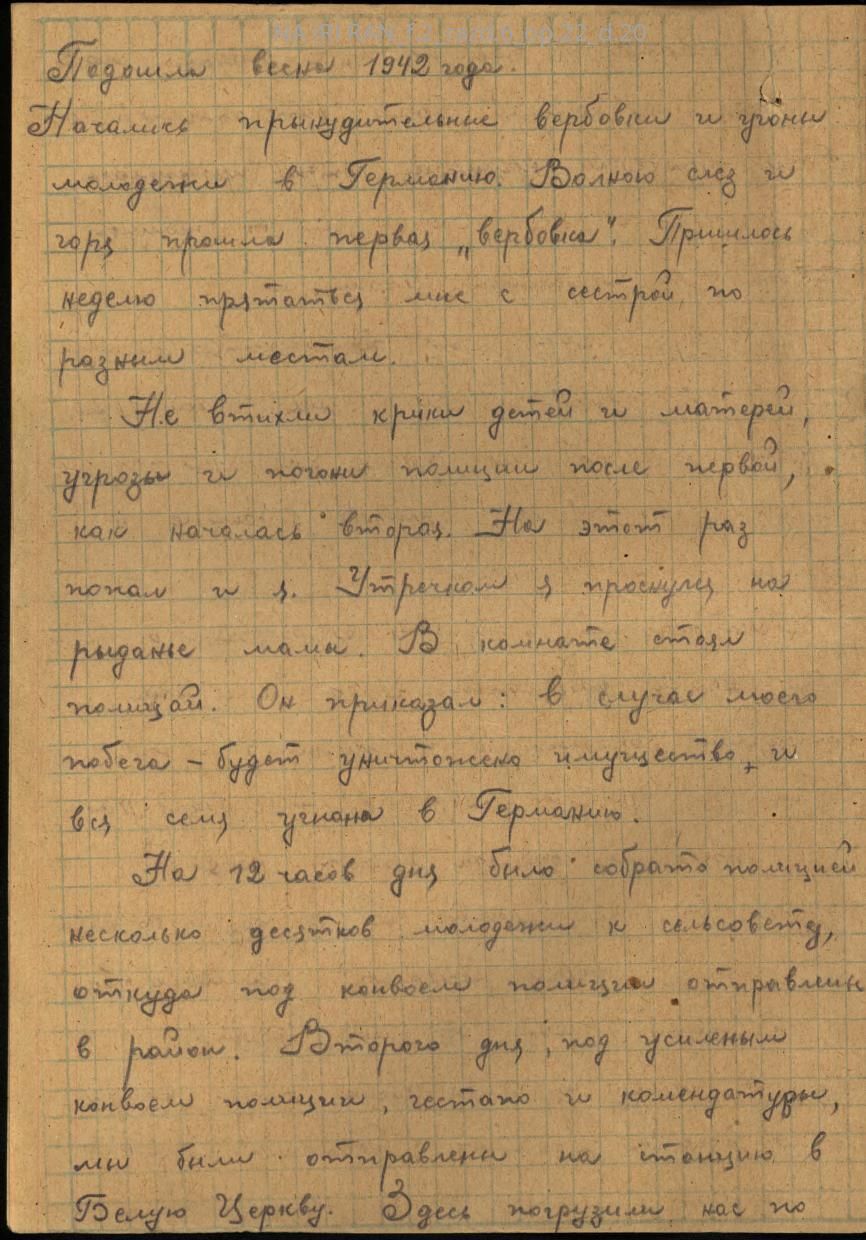 НА ИРИ RAN F.2_razd.6_op.22_d.20
Подошла весна 1942 года.
Начались прынудительные вербовки и угоны
молодежи в Германию. Волною слез и
горя прошла первая „вербовка“. Пришлось
неделю прятаться мне с сестрой по
разным местам.
Не втихли крики детей и матерей,
угрозы и погони полиции после первой,
как началась вторая. На этот раз
попал и я. Утречком я проснулся на
рыданье мамы. В комнате стоял
полицай. Он приказал: в случае моего
побега – будет уничтожено имущество, и
вся семя угнана в Германию.
На 12 часов дня было собрато полицией
несколько десятков молодежи к сельсовету,
откуда под конвоем полиции отправлены
в район. Второго дня, под усиленым
конвоем полиции, гестапо и комендатуры,
мы были отправлены на станцию в
Белую Церкву. Здесь погрузили нас по